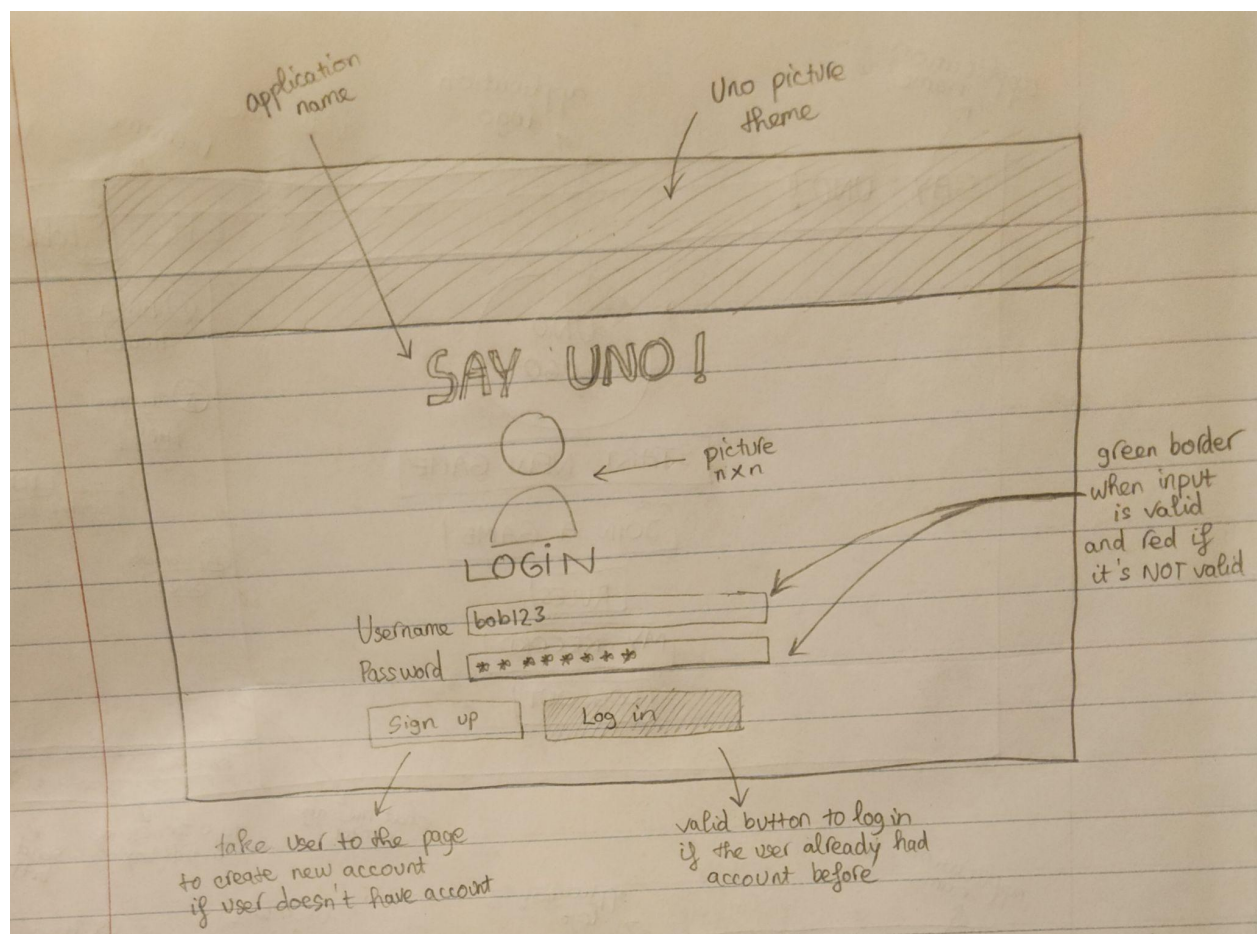 application
name
Uno picture
theme
SAY UNO!
picture
n x n
green border
when input
is valid
and red if
it's NOT valid
LOGIN
Username bob123
Password ********
Sign up Log in
take user to the page
to create new account
if user doesn't have account
valid button to log in
if the user already had
account before